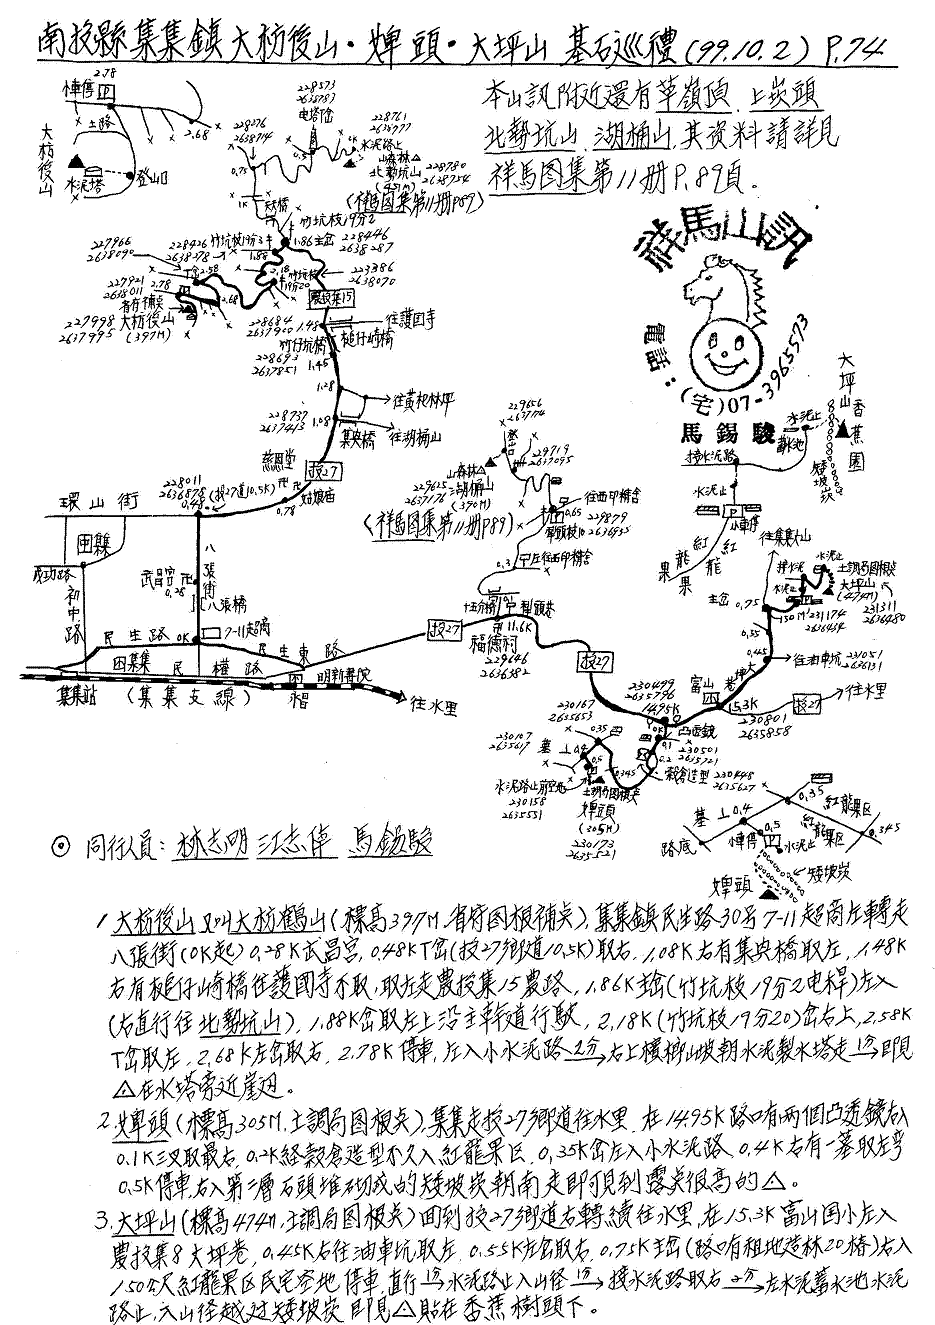 南投縣集集鎮大枋後山·焿頭·大坪山 基石巡禮(99.10.2) P.74
本山訊附近還有草嶺頂、上崁頭
北勢坑山、湖桶山,其資料請詳見
祥馬图集第11册P.89頁.
祥馬山訊
電話:(宅)07-3965573
馬錫駿
小車停 P 2.78
土路
2.68
大枋後山
水泥塔
登山口
228573
2638783
电塔岔
228276
2638714
228761
2638777
水泥路止
山森林△
北勢坑山
(451M)
228780
2638754
0.75
0.5
1K
(祥馬图集第11册P89)
竹坑枝19分2
1.86主岔
228446
2638287
227966
2638090
228426
2638278
竹坑枝19分3
1.88
T岔2.58
2.18
竹坑枝
19分20
223386
2638070
227921
2638011
2.78
2.68
省府補点
農投集15
227998
2637995
大枋後山
(397M)
228684
2637900
1.48
往護國寺
槌仔崎橋
竹仔坑橋
228693
2637851
1.45
1.28
往黃杷林坪
228737
2637413
1.08
集央橋
往湖桶山
慈恩堂
投27
姑娘庙
0.78
228011
2636878
(投27道10.5K)
0.48
環山街
八張街
武昌宮 卍
0.28
八張橋
国集
成功路
初中路
民生路
0K
7-11超商
民生東路
国集集
民權路
明新書院
集集站
(集集支線)
永昌
往水里
投27
229656
2637174
登山口
229719
2637095
山森林△
229625
2637176
湖桶山
(390M)
(祥馬图集第11册P89)
往西印精舍
0.65
229879
2636935
犁頭枝10
左往西印精舍
0.3
十五份橋
犁頭巷
11.6K
福德祠
229646
2636382
投27
230499
2635796
14.95K
230167
2635653
230107
2635617
0.35
0.4
0.5
0.345
0K
0.1
0.2
凸透鏡
230501
2635721
穀倉造型
230448
2635627
水泥路止前空地
230158
2635551
土調局图根点
焿頭
(305M)
230173
2635521
富山国
15.3K
230801
2635858
投27
往水里
大坪巷
0.45
往油車坑
231051
2636131
0.55
主岔
0.75
往集集大山
150M
231174
2636454
水泥止
土調局图根点
大坪山
(474M)
231311
2636480
接水泥路
水泥止
蓄水池
水泥止
小車停
紅龍果
紅龍果
大坪山
香蕉園
矮坡崁
0.35
紅龍果区
基⊥0.4
0.5
紅龍果区
0.345
路底
小車停
水泥止
矮坡崁
焿頭
◎ 同行人員:林志明 江志偉 馬錫駿
1. 大枋後山又叫大枋鶴山(標高397M.省府图根補点),集集鎮民生路30号7-11超商左轉走
八張街(0K起)0.28K武昌宮,0.48KT岔(投27鄉道10.5K)取右,1.08K右有集央橋取左,1.48K
右有槌仔崎橋往護國寺不取,取左走農投集15農路,1.86K主岔(竹坑枝19分2电桿)左入
(右直行往北勢坑山),1.88K岔取左上沿主幹道行駛,2.18K(竹坑枝19分20)岔右上,2.58K
T岔取左,2.68K左岔取右,2.78K停車,左入小水泥路 2分→右上檳榔山坡朝水泥製水塔走 1分→即見
△在水塔旁近崖边。
2. 焿頭(標高305M,土調局图根点),集集走投27鄉道往水里,在14.95K路口有两個凸透鏡右入
0.1K三叉取最右,0.2K経穀倉造型不久入紅龍果区,0.35K岔左入小水泥路,0.4K右有一墓取左弯
0.5K停車,右入第二層石頭堆砌成的矮坡崁朝南走即可見到露点很高的△。
3. 大坪山(標高474M,土調局图根点)回到投27鄉道右轉續往水里,在15.3K富山国小左入
農投集8大坪巷,0.45K右往油車坑取左,0.55K左岔取右,0.75K主岔(路口有租地造林20樁)右入
150公尺紅龍果区民宅空地停車,直行 1分→水泥路止入山徑 1分→接水泥路取右 2分→左水泥蓄水池水泥
路止,入山徑越过矮坡崁即見△貼在香蕉樹頭下。